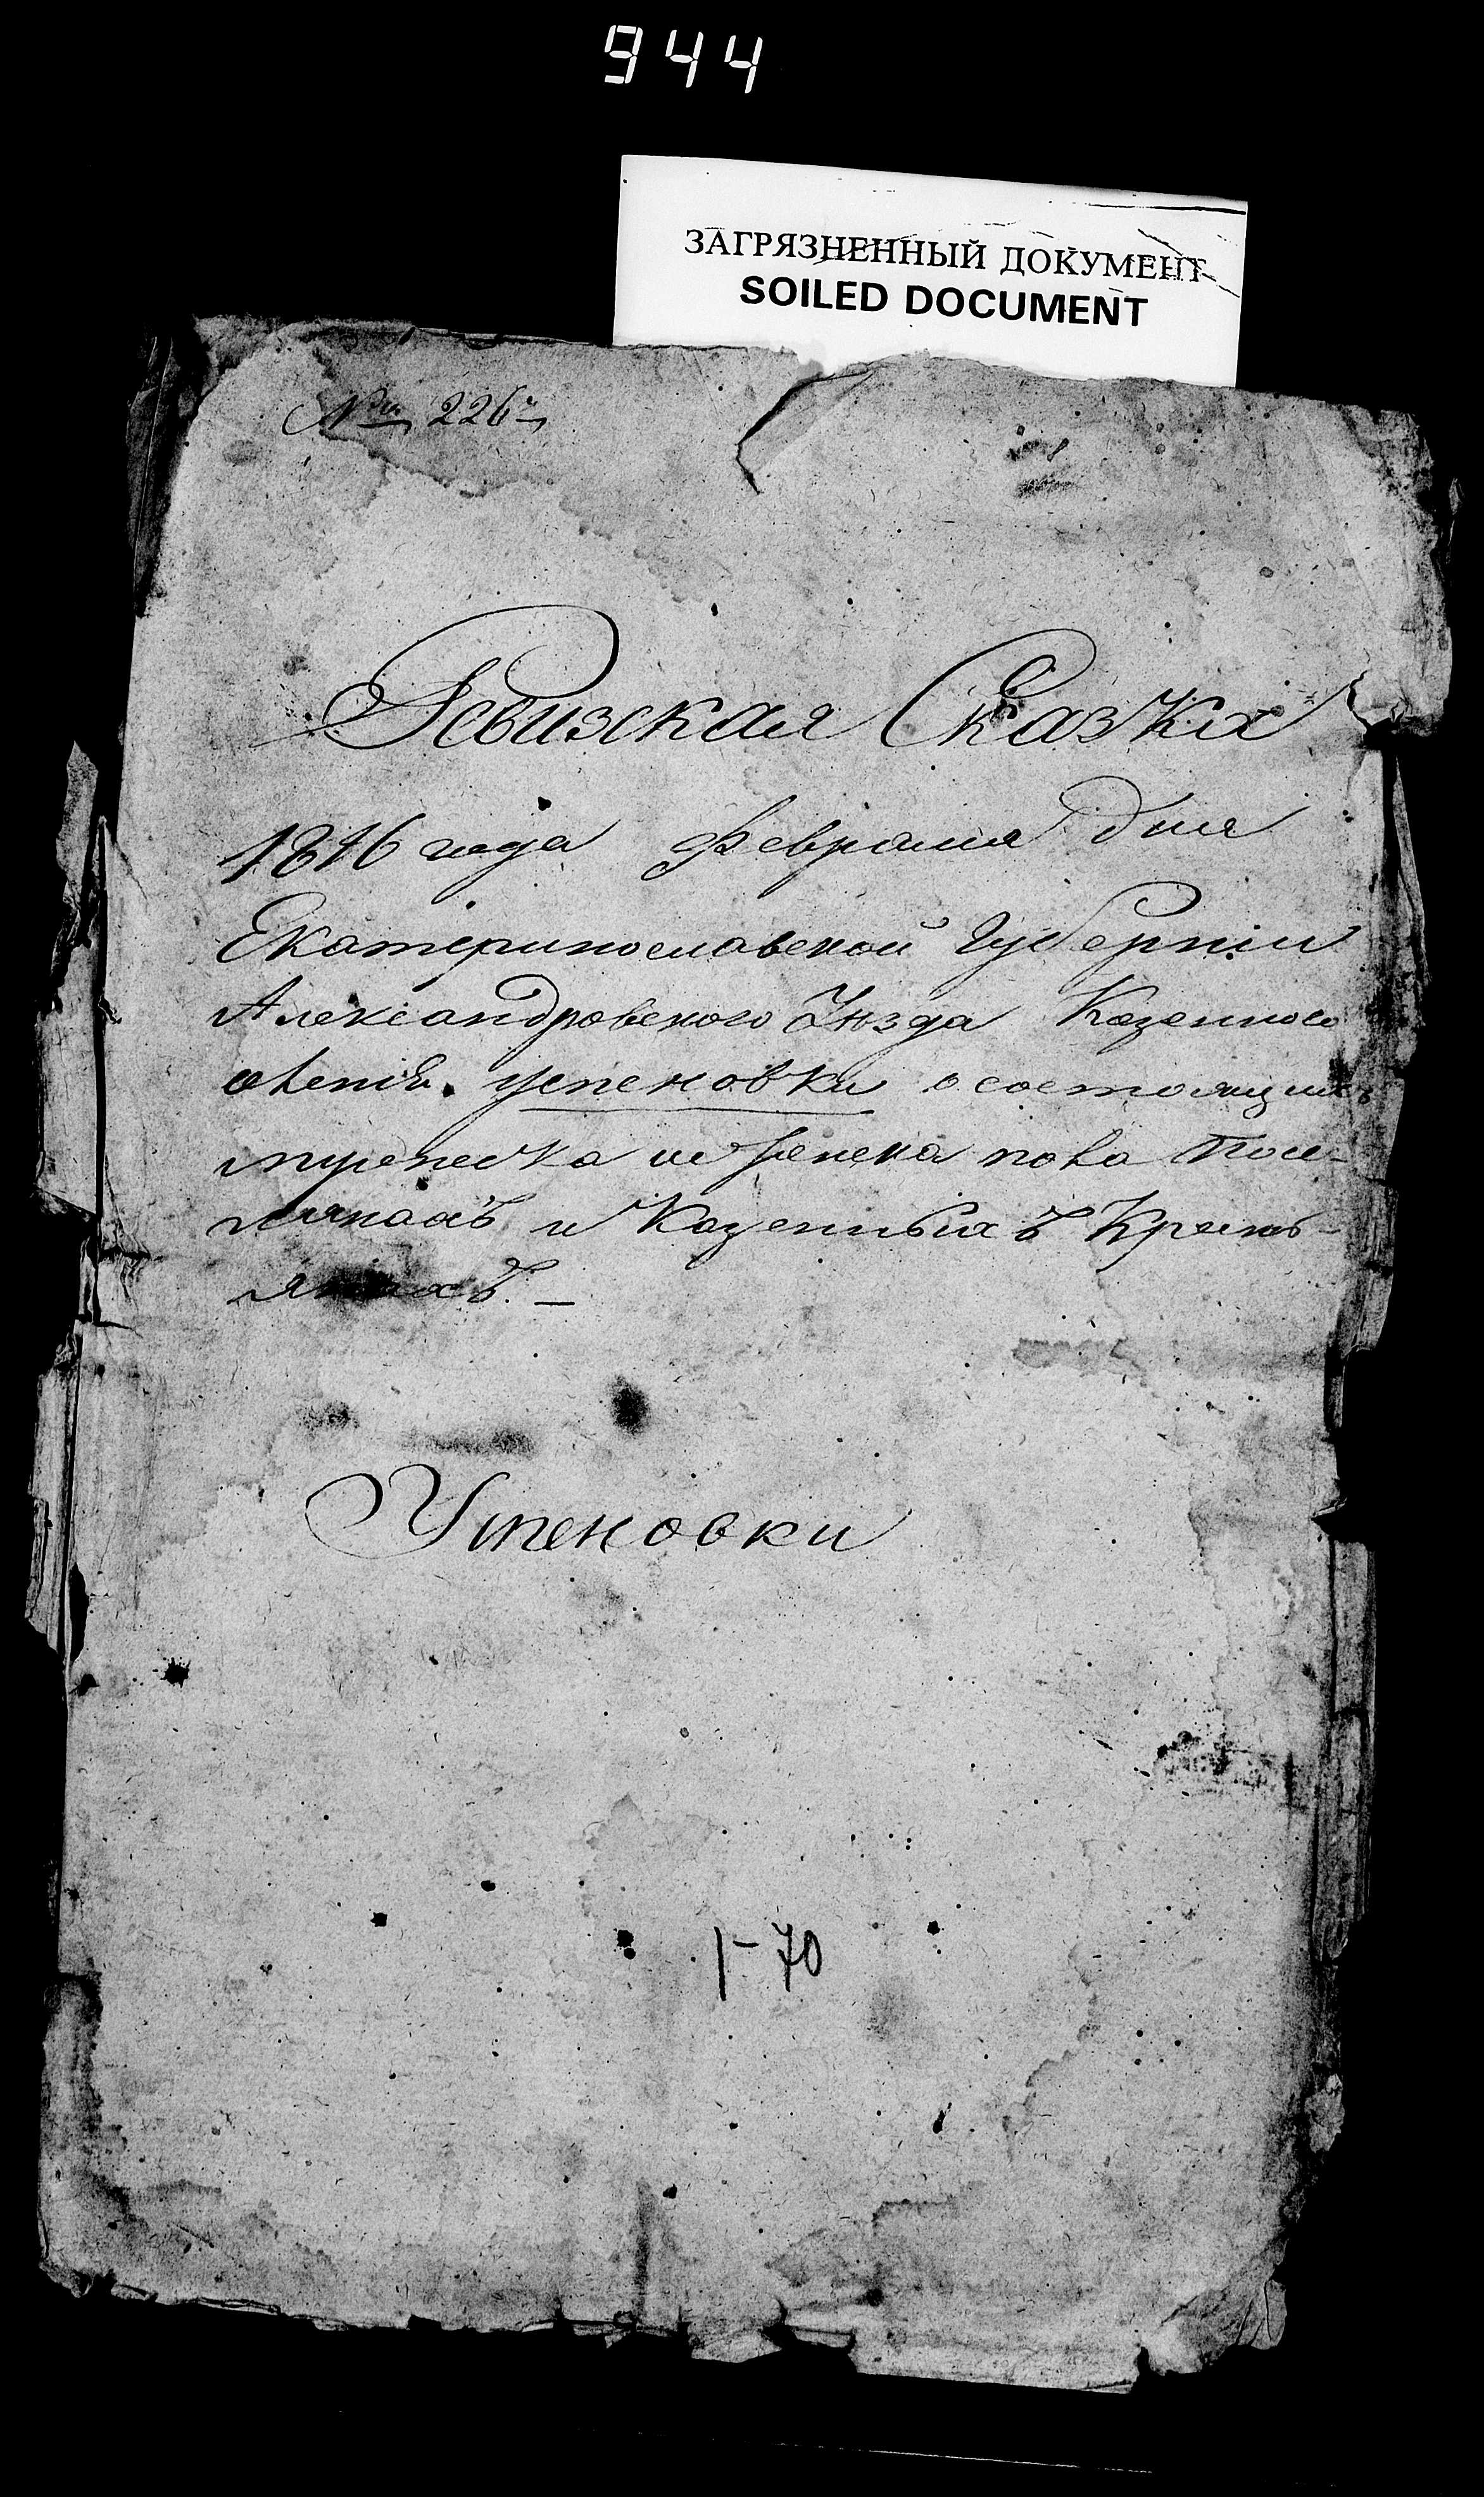 944
ЗАГРЯЗНЕННЫЙ ДОКУМЕНТ
SOILED DOCUMENT
№ 226
Ревизская Сказка
1816 года февраля дня
Екатеринославской Губернiи
Александровского Уѣзда Казенного
успеновки о состоящихъ
мужеска и женска пола Посе-
лянахъ и Казенныхъ Кресть-
янахъ. —
Успеновки
1-70